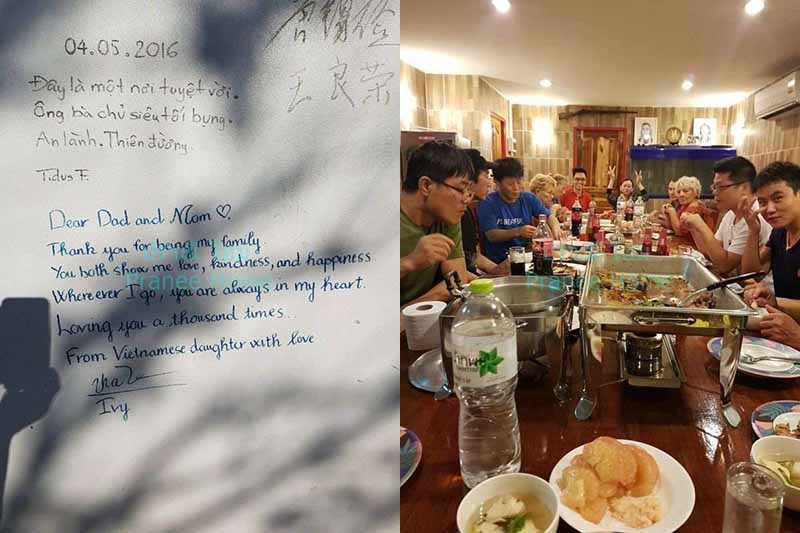 04.05.2016
Đây là một nơi tuyệt vời.
Ông bà chủ siêu tốt bụng.
An lành. Thiên đường.
Tidus F.
王良荣
Dear Dad and Mom ♡.
Thank you for being my family.
You both show me love, kindness, and happiness
Wherever I go, you are always in my heart.
Loving you a thousand times..
From Vietnamese daughter with love
Ivy